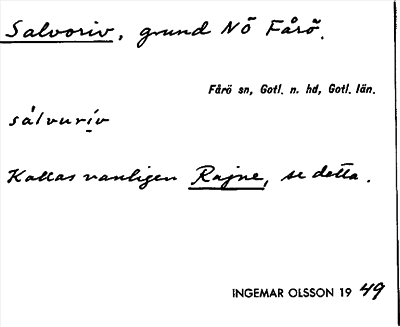 Salvoriv, grund NÖ Fårö.
Fårö sn, Gotl. n. hd, Gotl. län.
sálvurív
Kallas vanligen Rajne, se detta.
INGEMAR OLSSON 19 49